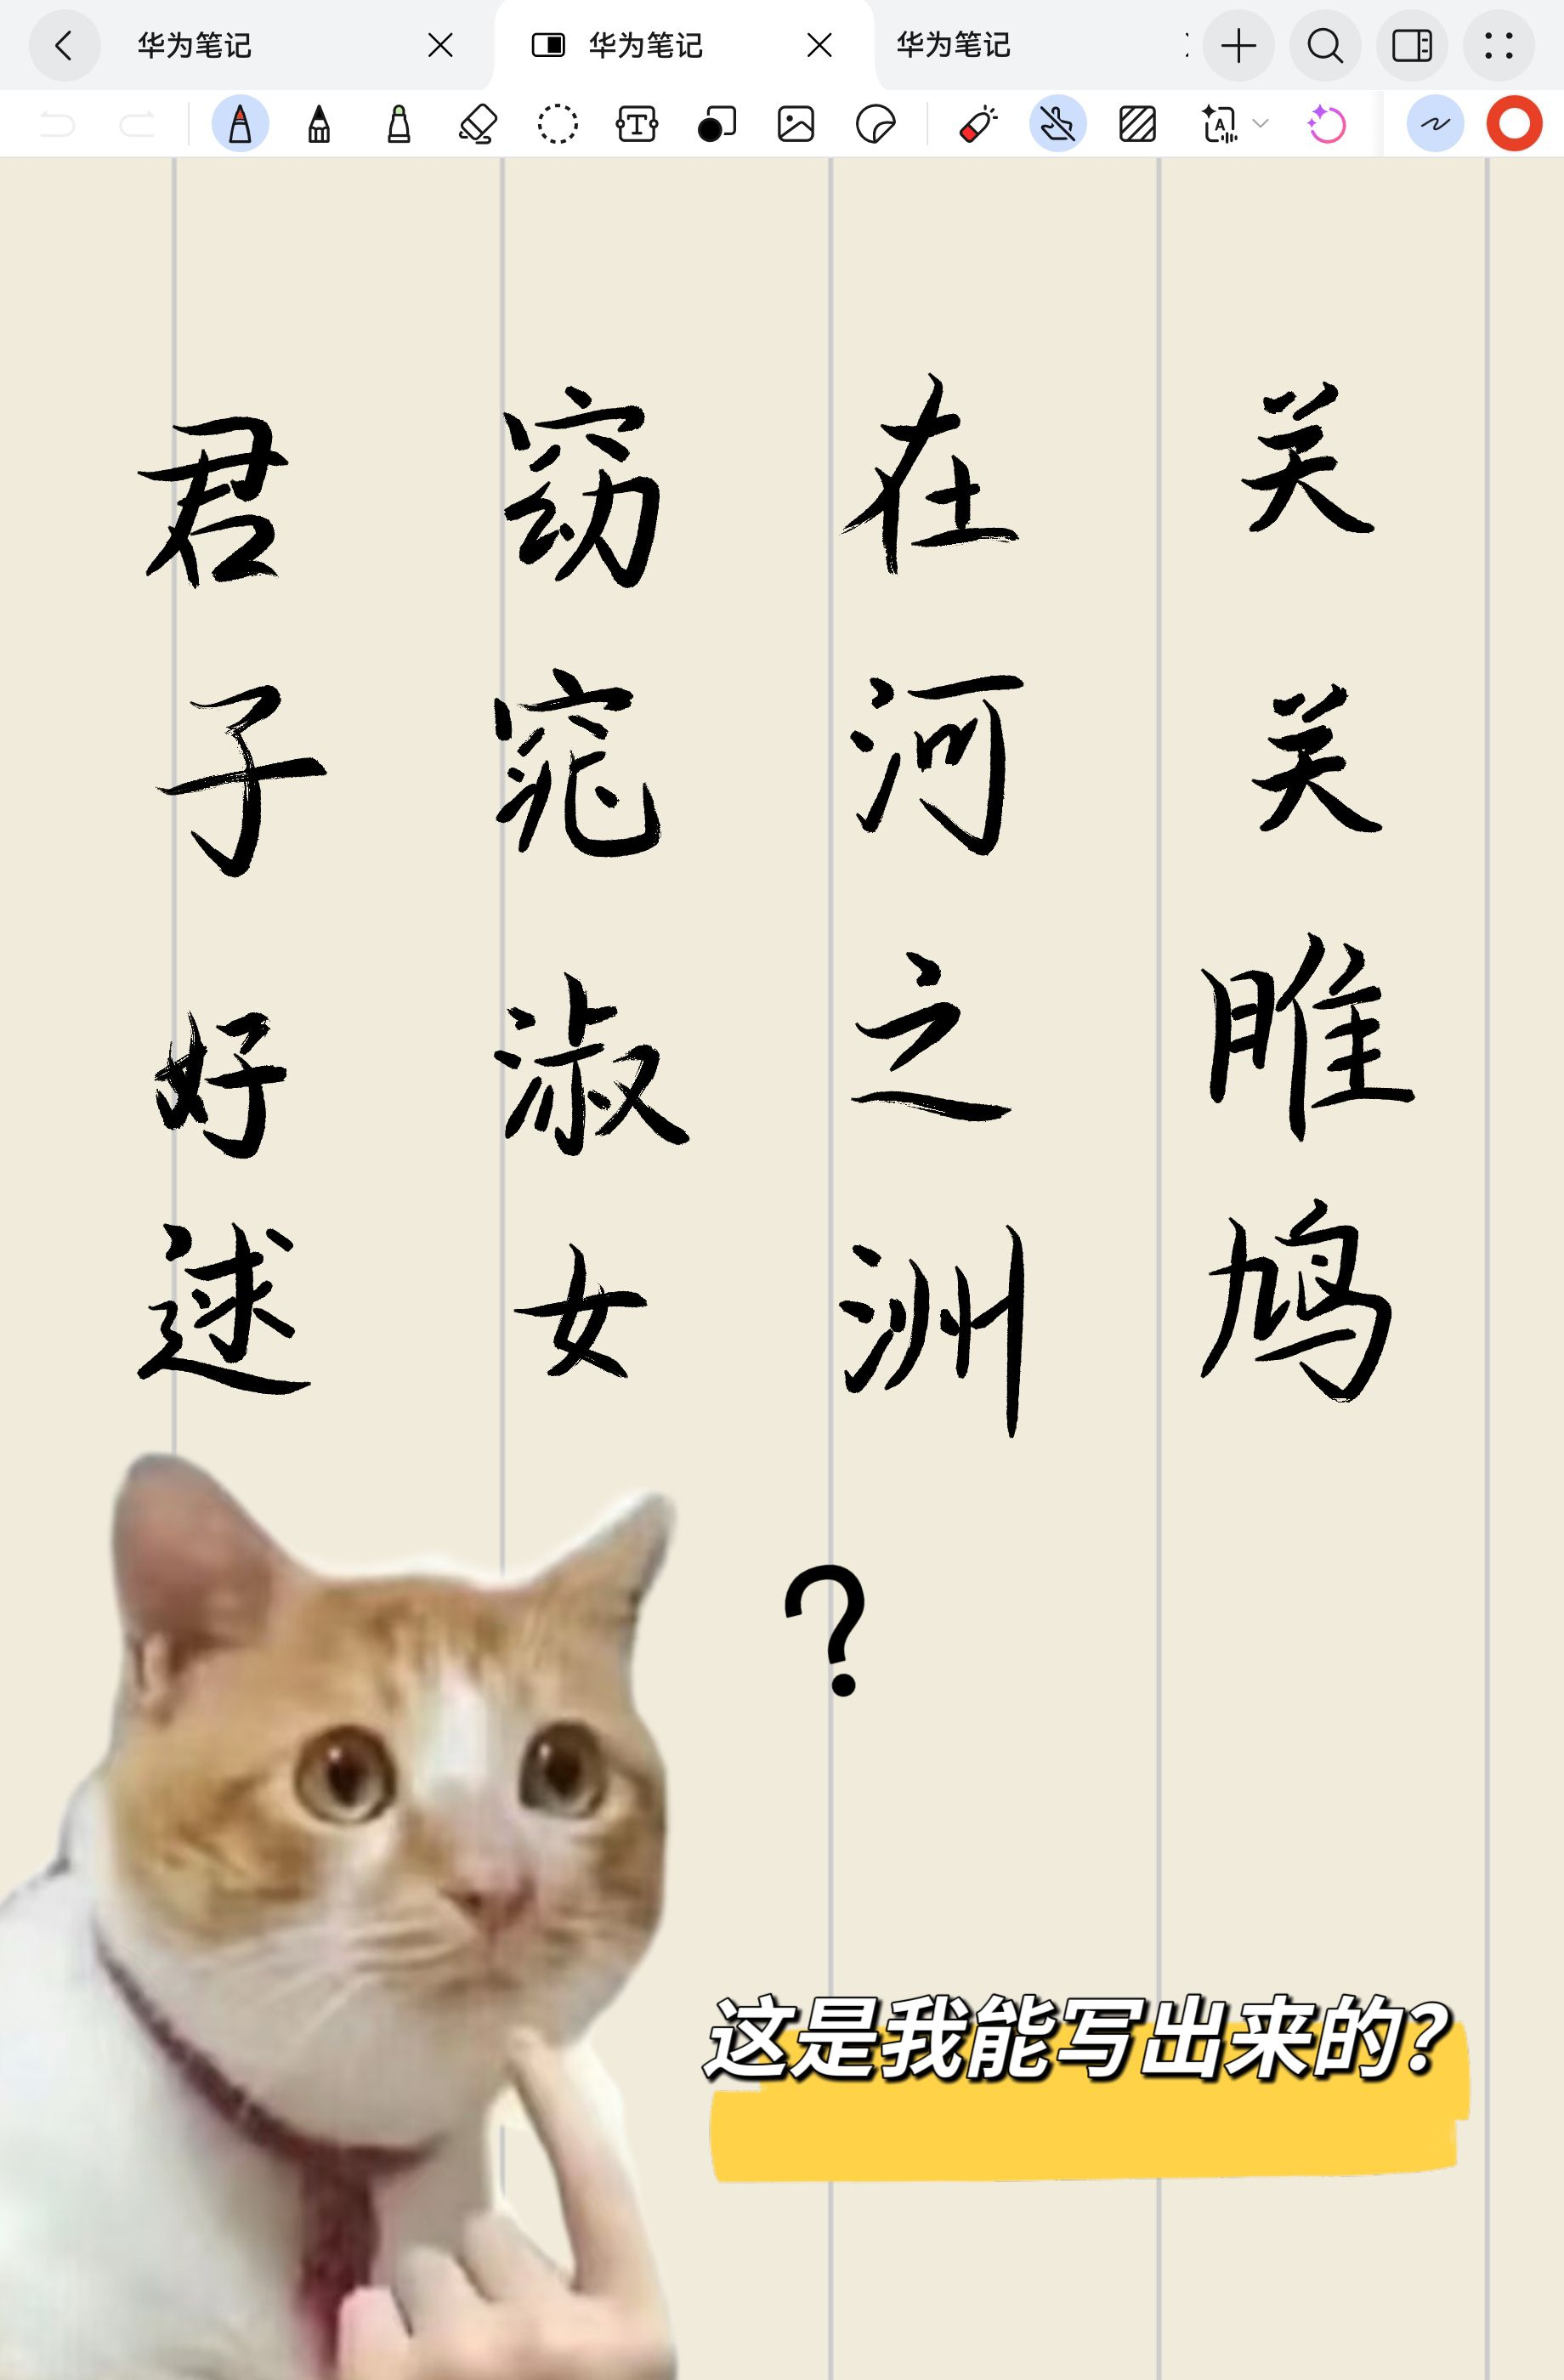 华为笔记
华为笔记
华为笔记
关关雎鸠
在河之洲
窈窕淑女
君子好逑
?
这是我能写出来的?